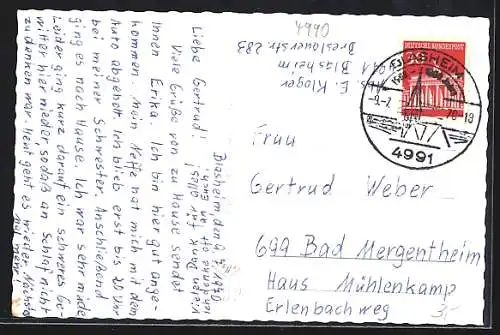 4990
Abs. E. Kloger
4991 Blasheim
Breslauerstr. 283
DEUTSCHE BUNDESPOST
BLASHEIM
-9.-7. 70-18
4991
Frau
Gertrud Weber
699 Bad Mergentheim
Haus Mühlenkamp
Erlenbachweg
3,-
Blasheim, den 9.7.1970
Liebe Gertrud!
Viele Grüße von zu Hause sendet
Ihnen Erika. Ich bin hier gut ange-
kommen. Mein Neffe hat mich mit dem
Auto abgeholt. Ich blieb erst bis 20 Uhr
bei meiner Schwester. Anschließend
ging es nach Hause. Ich war sehr müde
Leider ging kurz darauf ein schweres Ge-
witter hier nieder, so daß an Schlaf nicht
zu denken war. Heut geht es wieder. Nächstens
mehr.
Ich denke oft an Euch.
Vielen Dank für alles!